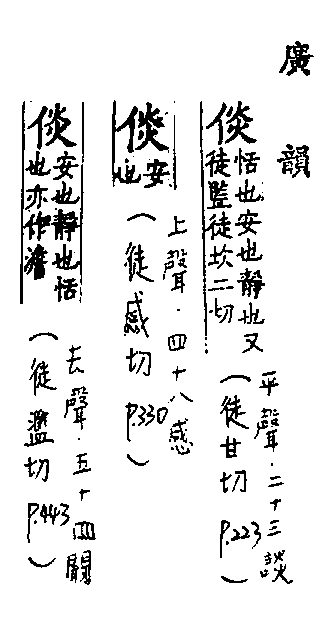 廣韻
倓
恬也安也靜也又
徒監徒坎二切
平聲·二十三談
(徒甘切 P.223)
倓
安
也
上聲·四十八感
(徒感切 P.330)
倓
安也靜也恬
也亦作澹
去聲·五十四闞
(徒濫切 P.443)